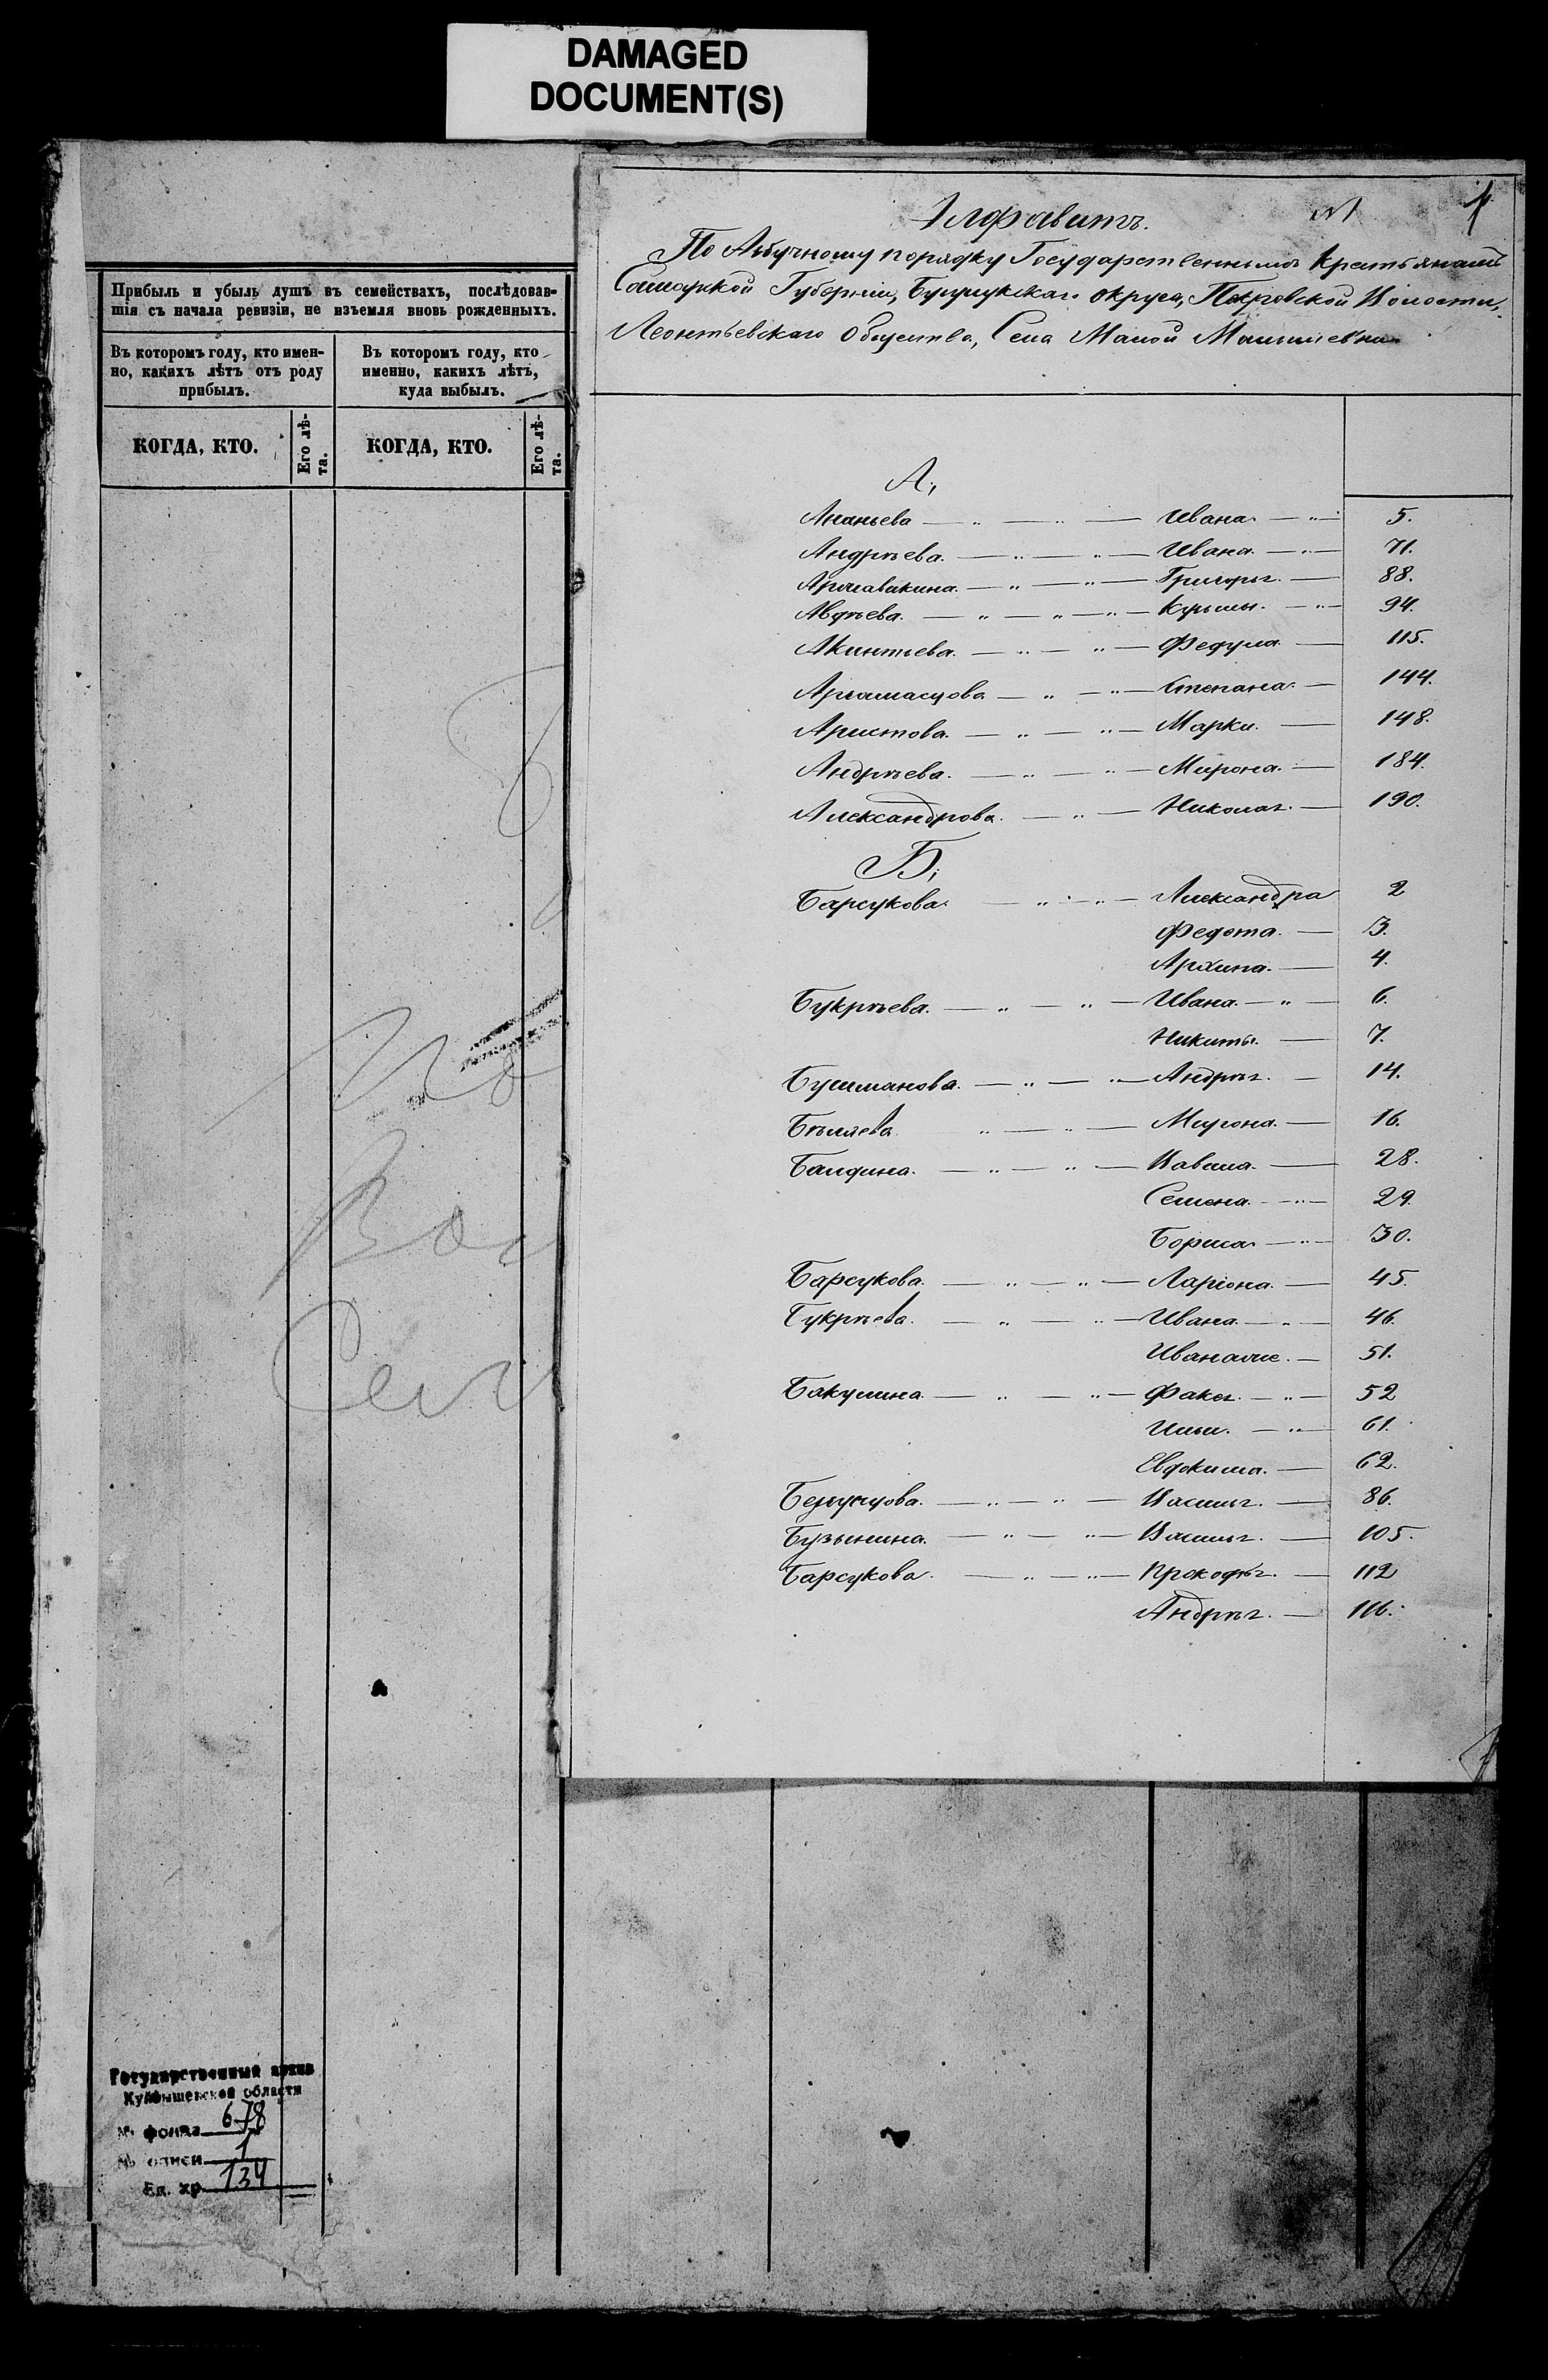 DAMAGED
DOCUMENT(S)
Прибыль и убыль душъ въ семействахъ, послѣдовав-
шія съ начала ревизіи, не изъемля вновь рожденныхъ.
Въ которомъ году, кто имен-
но, какихъ лѣтъ отъ роду
прибылъ.
Въ которомъ году, кто
именно, какихъ лѣтъ,
куда выбылъ.
КОГДА, КТО.
Его лѣ-
та.
КОГДА, КТО.
Его лѣ-
та.
Государственный архив
Куйбышевской области
№ фонда 678
№ описи 1
Ед. хр. 134
Алфавитъ.
По Азбучному порядку Государственнымъ Крестьянамъ
Самарской Губерніи, Бузулукскаго округа, Покровской Волости,
Леонтьевскаго Общества, Села Малой Малышевки
А,
Ананьева Ивана 5.
Андрѣева Ивана 71.
Григорья 88.
Авдѣева Кузьмы 94.
Акинтьева Федула 115.
Арзамасцова Степана 144.
Аристова Марки 148.
Андрѣева Мирона 184.
Александрова Николая 190.
Б,
Барсукова Александра 2
Федота 3.
Архипа 4.
Букрѣева Ивана 6.
Никиты 7.
Бушманова Андрѣя 14.
Бѣляева Мирона 16.
Балдина Павла 28.
Семена 29.
Бориса 30.
Барсукова Ларіона 45.
Букрѣева Ивана 46.
51.
Бакулина Факи 52
Ильи 61.
Евдокима 62.
Василья 86.
Бузынина Василья 105.
Барсукова Прокофья 112
Андрѣя 116.